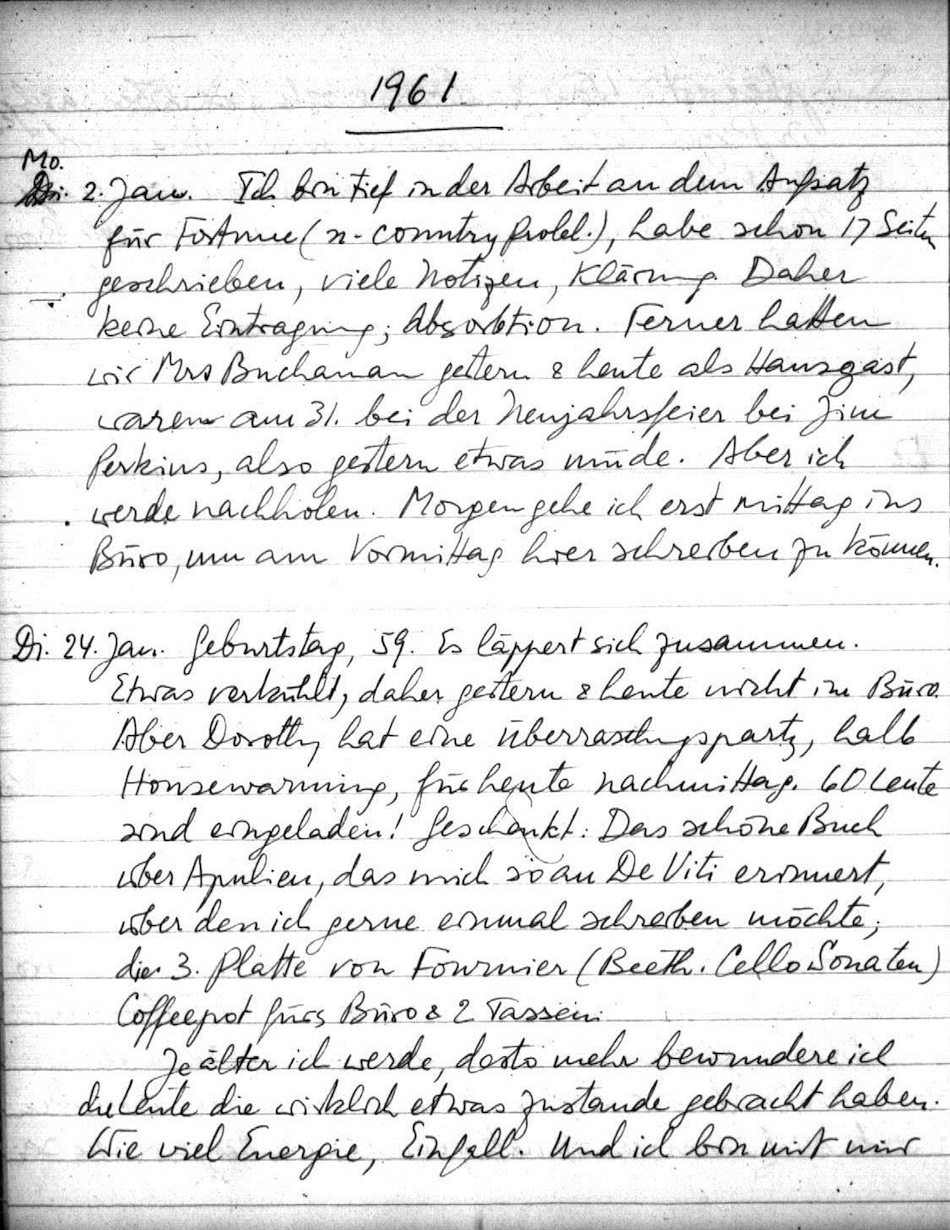 1961
Mo.
Di. 2. Jan. Ich bin tief in der Arbeit an dem Aufsatz
für Fortune (n-country probl.), habe schon 17 Seiten
geschrieben, viele Notizen, Klärung. Daher
keine Eintragung; Absorbtion. Ferner hatten
wir Mrs Buchanan gestern & heute als Hausgast,
waren am 31. bei der Neujahrsfeier bei Jim
Perkins, also gestern etwas müde. Aber ich
werde nachholen. Morgen gehe ich erst mittag ins
Büro, um am Vormittag hier schreiben zu können.
Di. 24. Jan. Geburtstag, 59. Es läppert sich zusammen.
Etwas verkühlt, daher gestern & heute nicht im Büro.
Aber Dorothy hat eine Überraschgsparty, halb
Housewarming, für heute nachmittag. 60 Leute
sind eingeladen! Geschenkt: Das schöne Buch
über Apulien, das mich so an De Viti erinnert,
über den ich gerne einmal schreiben möchte;
die 3. Platte von Fournier (Beeth. Cello Sonaten)
Coffeepot fürs Büro & 2 Tassen.
Je älter ich werde, desto mehr bewundere ich
die Leute die wirklich etwas zustande gebracht haben.
Wie viel Energie, Einfall. Und ich bin mit mir